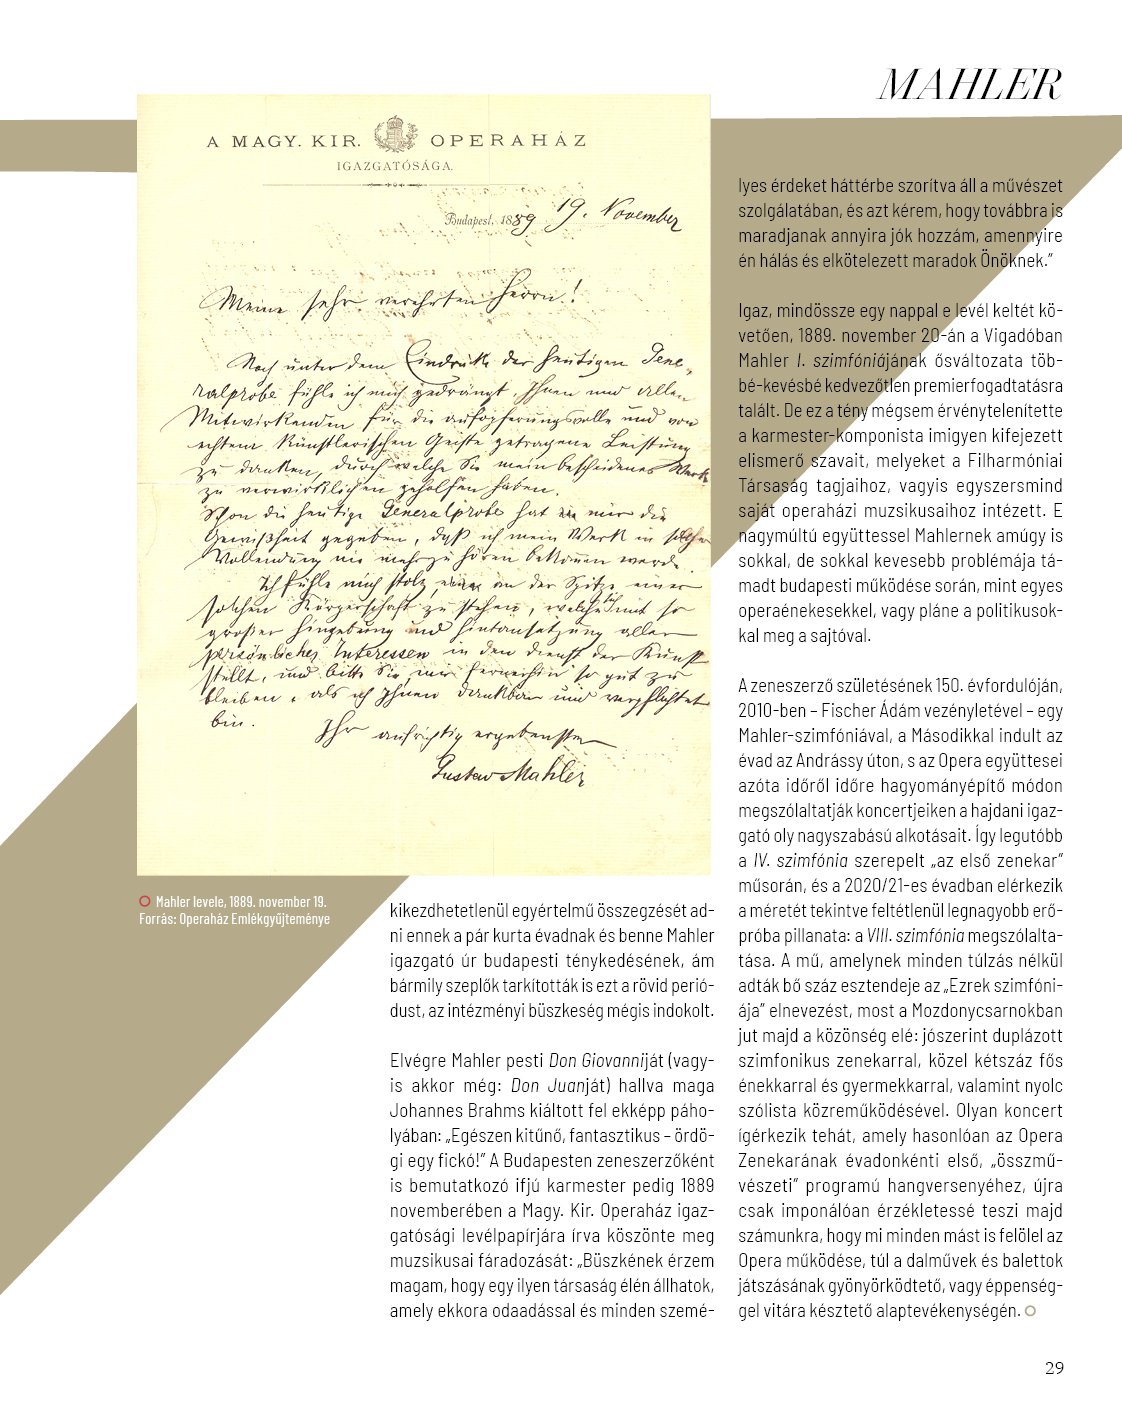 MAHLER
A MAGY. KIR. OPERAHÁZ
IGAZGATÓSÁGA.
Budapest, 1889 19. November
Meine sehr verehrten Herrn!
Noch unter dem Eindruck der heutigen Gene-
ralprobe fühle ich mich gedrängt, Ihnen und allen
Mitwirkenden für die aufopferungsvolle und von
echtem künstlerischen Geiste getragene Leistung
zu danken, durch welche Sie mein bescheidenes Werk
zu verwirklichen geholfen haben.
Schon die heutige Generalprobe hat mir die
Gewißheit gegeben, daß ich mein Werk in solcher
Vollendung nie mehr zu hören bekommen werde.
Ich fühle mich stolz, an der Spitze einer
solchen Körperschaft zu stehen, welche sich mit so
großer Hingebung und Hintansetzung aller
persönlichen Interessen in den Dienst der Kunst
stellt, und bitte Sie, mir fernerhin so gut zu
bleiben, als ich Ihnen dankbar und verpflichtet
bin.
Ihr aufrichtig ergebenster
Gustav Mahler
Mahler levele, 1889. november 19.
Forrás: Operaház Emlékgyűjteménye
kikezdhetetlenül egyértelmű összegzését ad-
ni ennek a pár kurta évadnak és benne Mahler
igazgató úr budapesti ténykedésének, ám
bármily szeplők tarkították is ezt a rövid perió-
dust, az intézményi büszkeség mégis indokolt.
Elvégre Mahler pesti Don Giovanniját (vagy-
is akkor még: Don Juanját) hallva maga
Johannes Brahms kiáltott fel ekképp páho-
lyában: „Egészen kitűnő, fantasztikus – ördö-
gi egy fickó!” A Budapesten zeneszerzőként
is bemutatkozó ifjú karmester pedig 1889
novemberében a Magy. Kir. Operaház igaz-
gatósági levélpapírjára írva köszönte meg
muzsikusai fáradozását: „Büszkének érzem
magam, hogy egy ilyen társaság élén állhatok,
amely ekkora odaadással és minden szemé-
lyes érdeket háttérbe szorítva áll a művészet
szolgálatában, és azt kérem, hogy továbbra is
maradjanak annyira jók hozzám, amennyire
én hálás és elkötelezett maradok Önöknek.”
Igaz, mindössze egy nappal e levél keltét kö-
vetően, 1889. november 20-án a Vigadóban
Mahler I. szimfóniájának ősváltozata töb-
bé-kevésbé kedvezőtlen premierfogadtatásra
talált. De ez a tény mégsem érvénytelenítette
a karmester-komponista imigyen kifejezett
elismerő szavait, melyeket a Filharmóniai
Társaság tagjaihoz, vagyis egyszersmind
saját operaházi muzsikusaihoz intézett. E
nagymúltú együttessel Mahlernek amúgy is
sokkal, de sokkal kevesebb problémája tá-
madt budapesti működése során, mint egyes
operaénekesekkel, vagy pláne a politikusok-
kal meg a sajtóval.
A zeneszerző születésének 150. évfordulóján,
2010-ben – Fischer Ádám vezényletével – egy
Mahler-szimfóniával, a Másodikkal indult az
évad az Andrássy úton, s az Opera együttesei
azóta időről időre hagyományépítő módon
megszólaltatják koncertjeiken a hajdani igaz-
gató oly nagyszabású alkotásait. Így legutóbb
a IV. szimfónia szerepelt „az első zenekar”
műsorán, és a 2020/21-es évadban elérkezik
a méretét tekintve feltétlenül legnagyobb erő-
próba pillanata: a VIII. szimfónia megszólalta-
tása. A mű, amelynek minden túlzás nélkül
adták bő száz esztendeje az „Ezrek szimfóni-
ája” elnevezést, most a Mozdonycsarnokban
jut majd a közönség elé: jószerint duplázott
szimfonikus zenekarral, közel kétszáz fős
énekkarral és gyermekkarral, valamint nyolc
szólista közreműködésével. Olyan koncert
ígérkezik tehát, amely hasonlóan az Opera
Zenekarának évadonkénti első, „összmű-
vészeti” programú hangversenyéhez, újra
csak imponálóan érzékletessé teszi majd
számunkra, hogy mi minden mást is felölel az
Opera működése, túl a dalművek és balettok
játszásának gyönyörködtető, vagy éppenség-
gel vitára késztető alaptevékenységén.
29